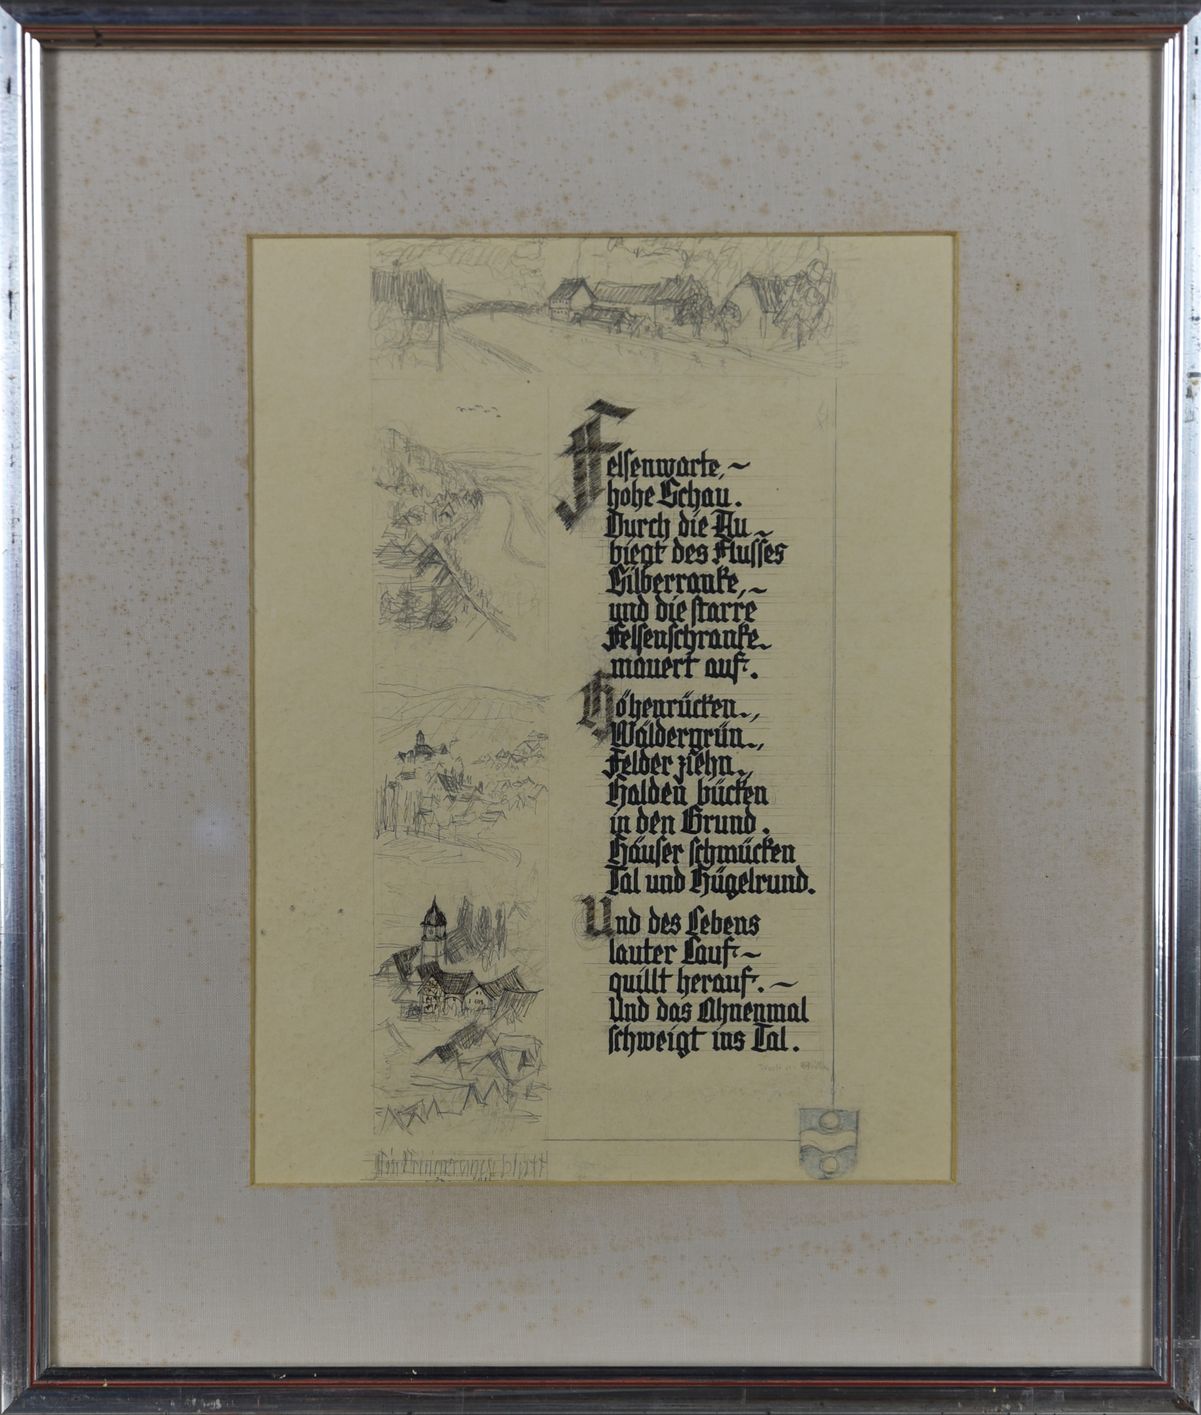 Felsenwarte, ~
hohe Schau.
Durch die Au ~
biegt des Flusses
Silberranke, ~
und die starre
Felsenschranke
mauert auf.
Höhenrücken.,
Wäldergrün.,
Felder ziehn.,
Halden bücken
in den Grund.
Häuser schmücken
Tal und Hügelrund.
Und des Lebens
lauter Lauf ~
quillt herauf. ~
Und das Ahnenmal
schweigt ins Tal.